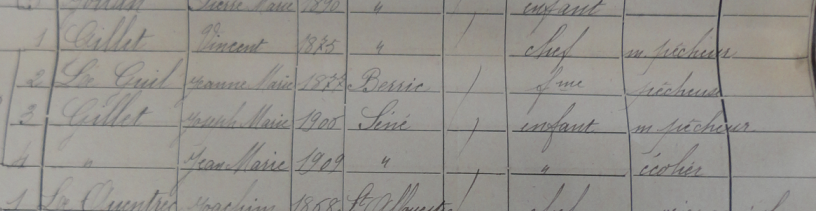 Pierre Marie 1890 " enfant
1 Gillet Vincent 1875 " chef m pêcheur
2 Le Guil Jeanne Marie 1877 Berric fme pêcheuse
3 Gillet Joseph Marie 1906 Séné enfant m pêcheur
4 " Jean Marie 1909 " " écolier
1 Le Quentrec Joachim 1868 St Allouestre chef